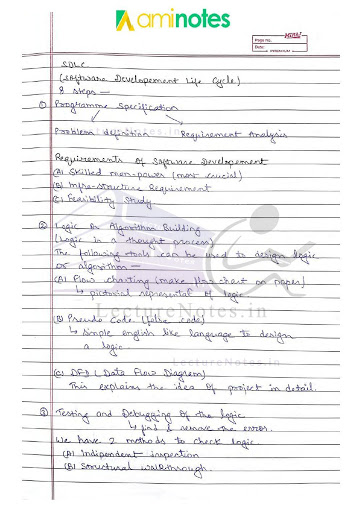 aminotes
Page No.
Date:
SDLC
(Software Developement Life Cycle)
8 steps —
① Programme Specification
Problem definition Requirement Analysis
Requirements of Software Developement
(A) Skilled man-power (most crucial)
(B) Infra-structure Requirement
(C) Feasibility Study
② Logic or Algorithm Building
(Logic is a thought process)
The following tools can be used to design logic
or algorithm —
(A) Flow charting (make flow chart on paper)
↳ pictorial represental of logic.
LectureNotes.in
(B) Pseudo Code (false code)
↳ simple english like language to design
a logic.
LectureNotes.in
(C) DFD (Data Flow Diagram)
This explains the idea of project in detail.
③ Testing and Debugging of the logic
↳ find & remove the error.
We have 2 methods to check logic.
(A) Independent inspection
(B) Structural walkthrough.